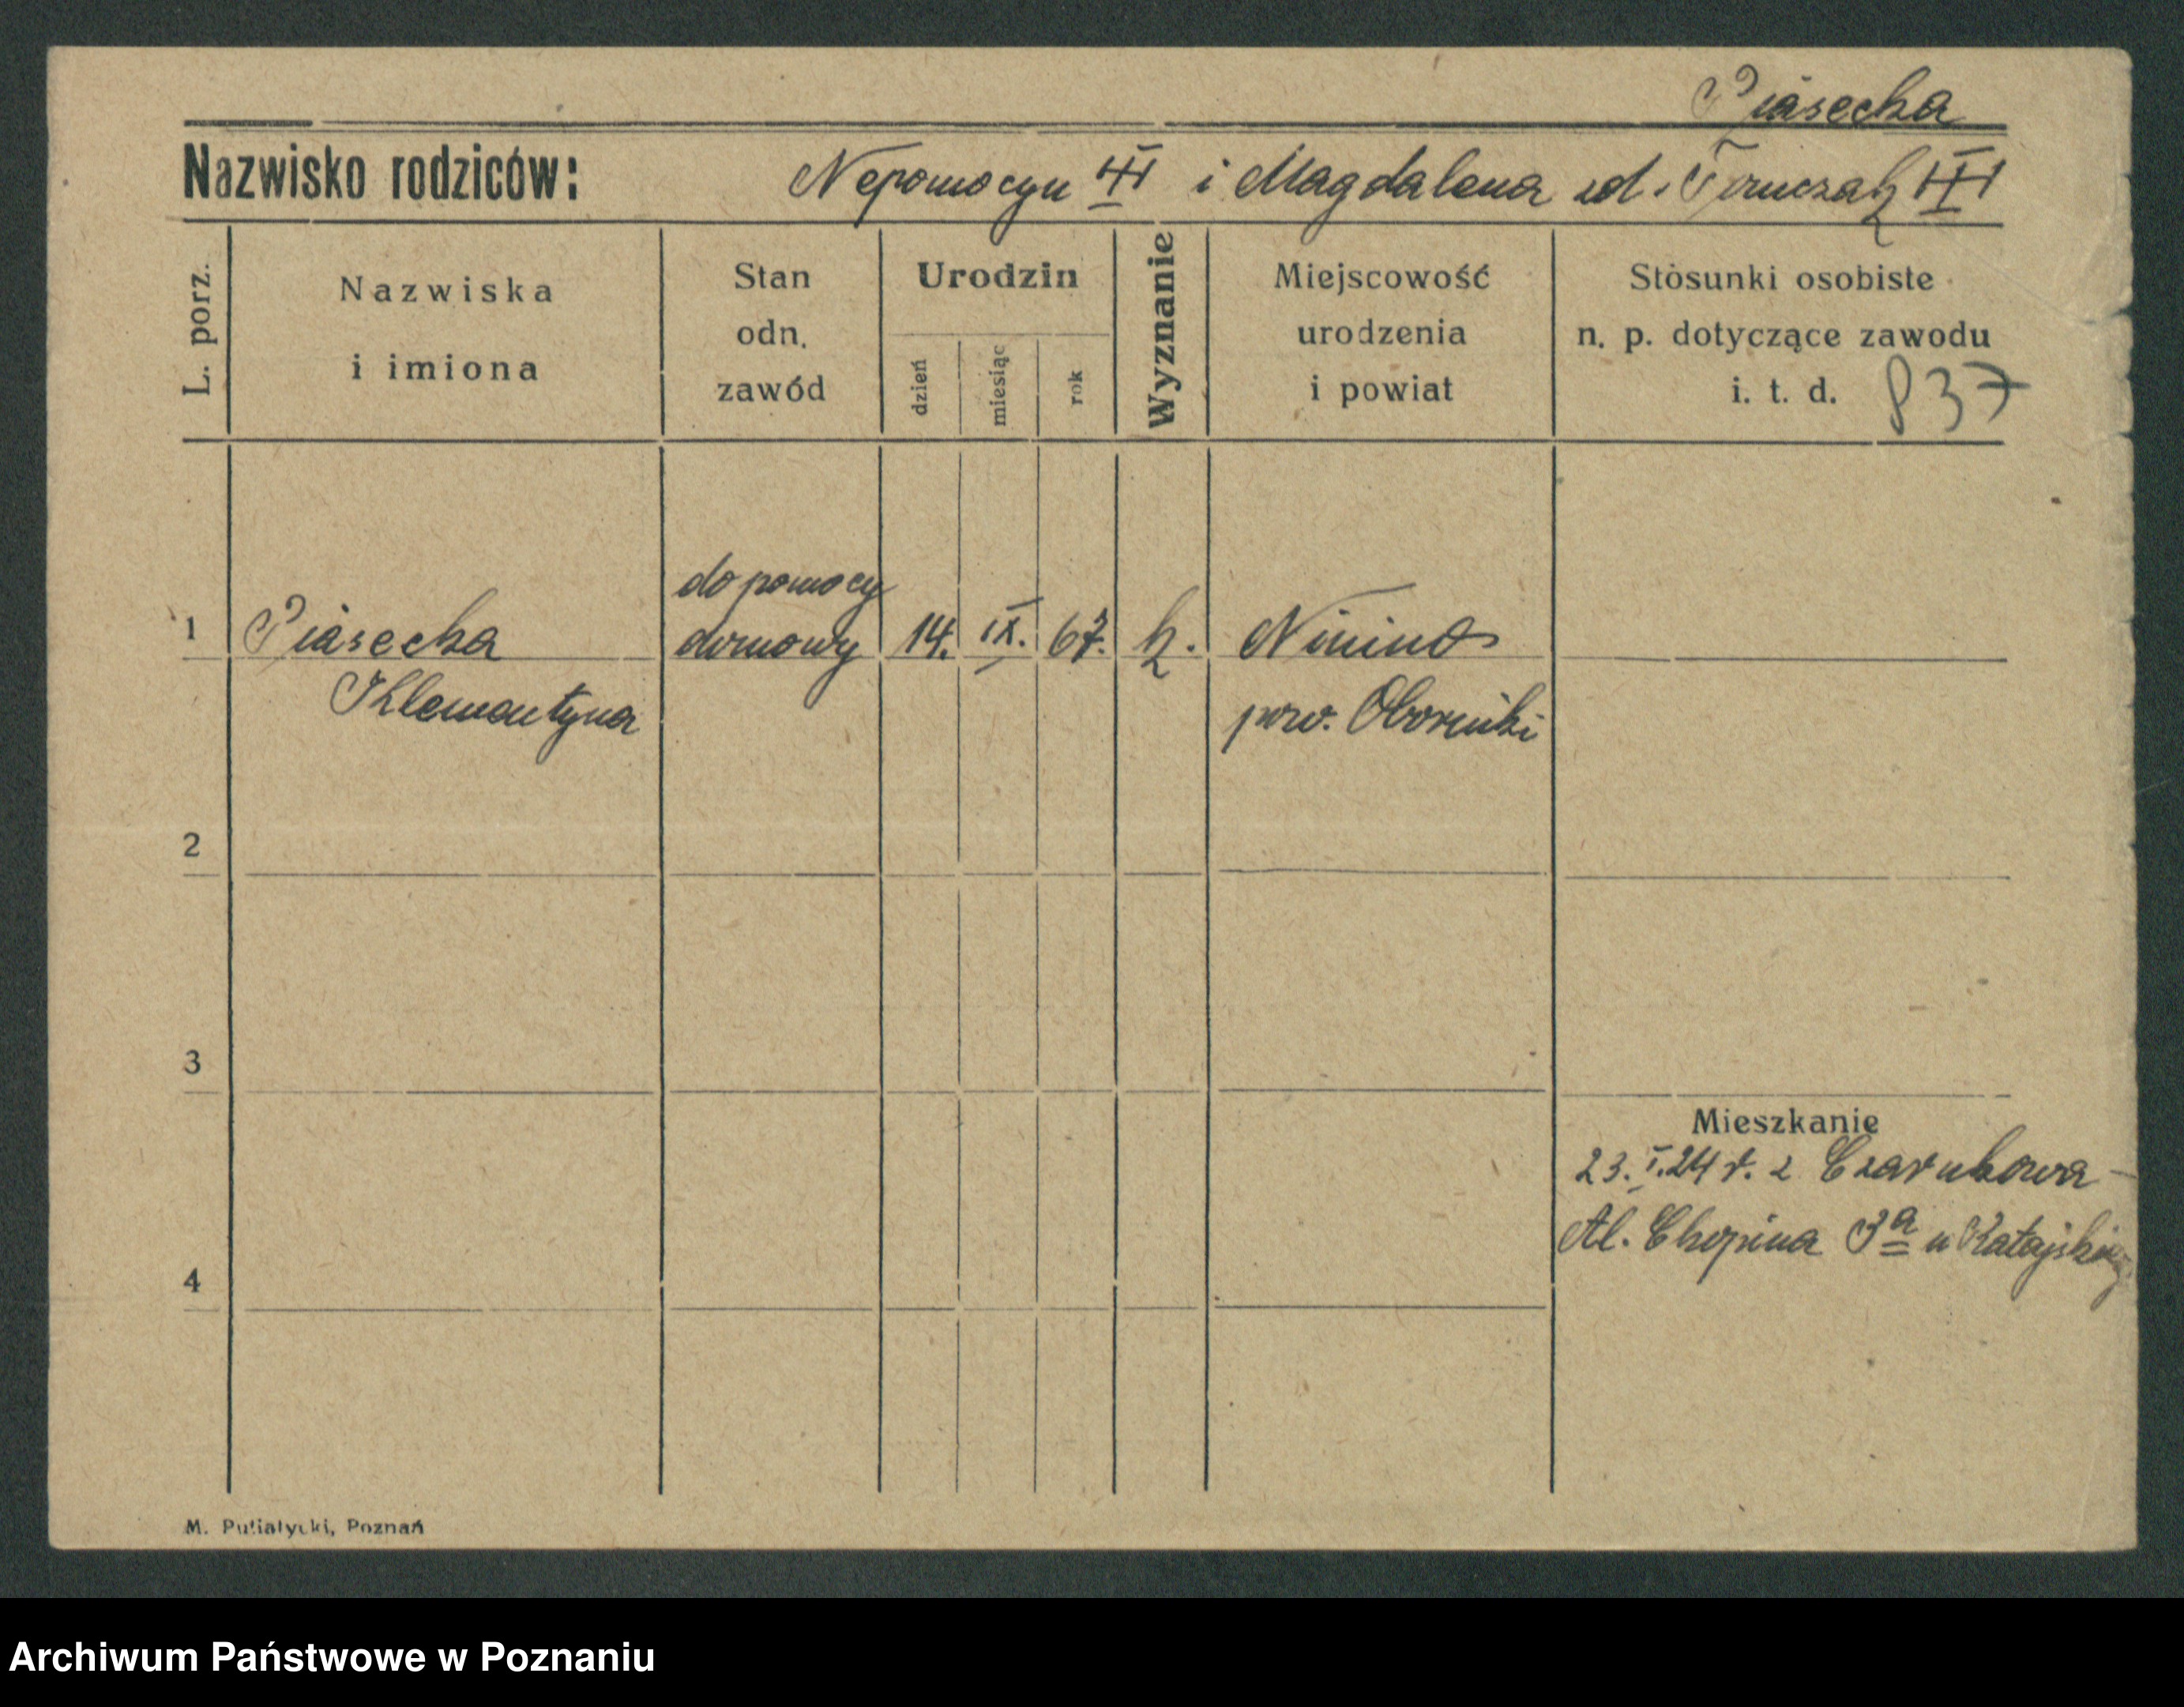 Piasecka
Nazwisko rodziców: Nepomocyn i Magdalena zd. Tomczak
L. porz.
Nazwiska
i imiona
Stan
odn.
zawód
Urodzin
dzień
miesiąc
rok
Wyznanie
Miejscowość
urodzenia
i powiat
Stosunki osobiste
n. p. dotyczące zawodu
i. t. d.
837
do pomocy
1 Piasecka domowy 14. IX. 67. k. Ninino
Klemantyna pow. Oborniki
2
3
Mieszkanie
23. I. 24 r. z Czarnkowa
Al. Chopina 3a u
4
M. Putiatycki, Poznań
Archiwum Państwowe w Poznaniu